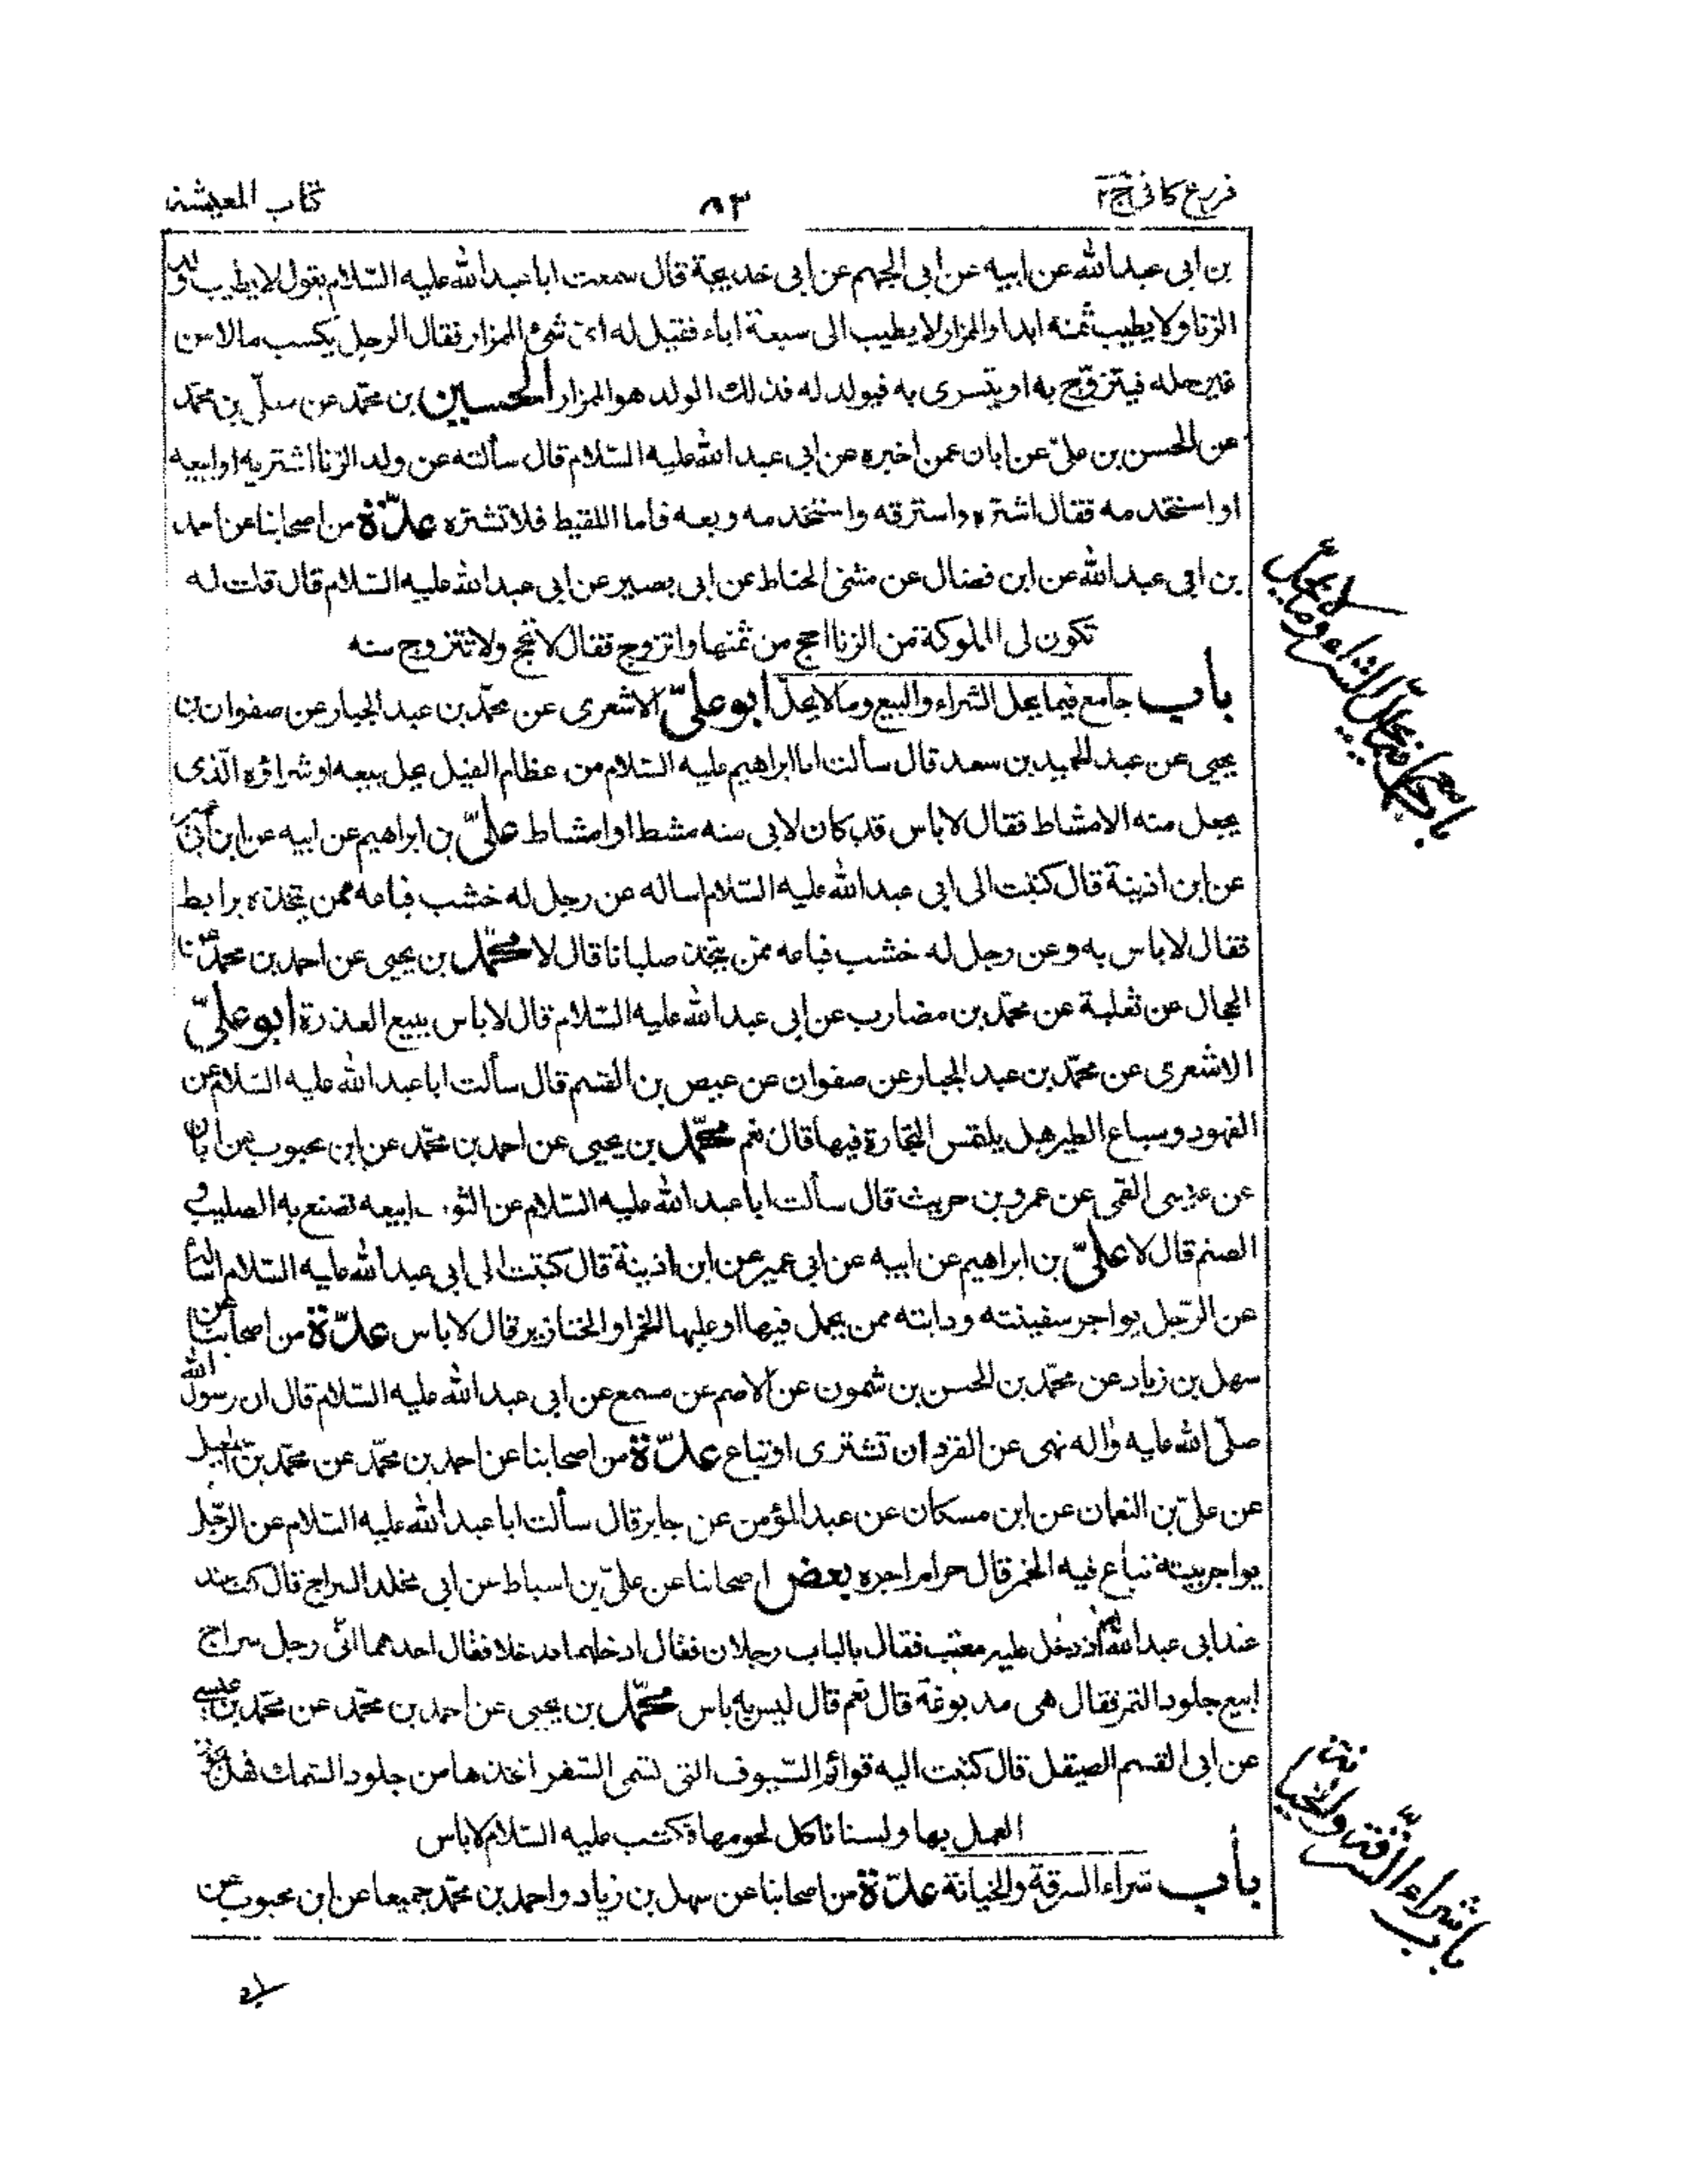 فروع كافى ج٢
٨٣
كتاب المعيشة
بن ابى عبد الله عن ابيه عن ابى الجهم عن ابى خديجة قال سمعت ابا عبد الله عليه السّلام يقول لا يطيب ولد
الزنا ولا يطيب ثمنه ابدا والمزار لا يطيب الى سبعة اباء فقيل له اى شئ المزار فقال الرجل يكسب مالا من
غير حله فيتزوّج به او يتسرى به فيولد له فذلك الولد هو المزار الحسين بن محمّد عن معلّى بن محمّد
عن الحسن بن علىّ عن ابان عمن اخبره عن ابى عبد الله عليه السّلام قال سألته عن ولد الزنا اشتريه او ابيعه
او استخدمه فقال اشتره واسترقه واستخدمه وبعه فاما اللقيط فلا تشتره عدّة من اصحابنا عن احمد
بن ابى عبد الله عن ابن فضال عن مثنى الحناط عن ابى بصير عن ابى عبد الله عليه السّلام قال قلت له
تكون لى المملوكة من الزنا احج من ثمنها واتزوج فقال لا تحج ولا تتزوج منه
باب جامع فيما يحل الشراء والبيع وما لا يحل ابو علىّ الاشعرى عن محمّد بن عبد الجبار عن صفوان بن
يحيى عن عبد الحميد بن سعد قال سألت ابا ابراهيم عليه السّلام من عظام الفيل يحل بيعه او شراؤه الّذى
يجعل منه الامشاط فقال لا باس قد كان لابى منه مشط او امشاط علىّ بن ابراهيم عن ابيه عن ابن ابى عمير
عن ابن اذينة قال كتبت الى ابى عبد الله عليه السّلام اساله عن رجل له خشب فباعه ممن يتخذه برابط
فقال لا باس به وعن رجل له خشب فباعه ممّن يتخذه صلبانا قال لا محمّد بن يحيى عن احمد بن محمّد عن
الحجال عن ثعلبة عن محمّد بن مضارب عن ابى عبد الله عليه السّلام قال لا باس ببيع العذرة ابو علىّ
الاشعرى عن محمّد بن عبد الجبار عن صفوان عن عيص بن القسم قال سألت ابا عبد الله عليه السّلام عن
الفهود وسباع الطير هل يلتمس التجارة فيها قال نعم محمّد بن يحيى عن احمد بن محمّد عن ابن محبوب عن ابان
عن عيسى القمى عن عمرو بن حريث قال سألت ابا عبد الله عليه السّلام عن التو ابيعه تصنع به الصليب و
الصنم قال لا علىّ بن ابراهيم عن ابيه عن ابى عمير عن ابن اذينة قال كتبت الى ابى عبد الله عليه السّلام اسأله
عن الرّجل يواجر سفينته ودابته ممن يحمل فيها او عليها الخمر او الخنازير قال لا باس عدّة من اصحابنا عن
سهل بن زياد عن محمّد بن الحسن بن شمون عن الاصم عن مسمع عن ابى عبد الله عليه السّلام قال ان رسول الله
صلّى الله عليه واله نهى عن القرد ان تشترى او تباع عدّة من اصحابنا عن احمد بن محمّد عن محمّد بن اسمعيل
عن علىّ بن النعمان عن ابن مسكان عن عبد المؤمن عن جابر قال سألت ابا عبد الله عليه السّلام عن الرّجل
يواجر بيته تباع فيه الخمر قال حرام اجره بعض اصحابنا عن علىّ بن اسباط عن ابى مخلد السراج قال كنت عند
عند ابى عبد الله اذ دخل عليه معتب فقال بالباب رجلان فقال ادخلهما فدخلا فقال احدهما انّى رجل سراج
ابيع جلود النمر فقال هى مدبوغة قال نعم قال ليس به باس محمّد بن يحيى عن احمد بن محمّد عن محمّد بن عيسى
عن ابى القسم الصيقل قال كتبت اليه قوائم السّيوف التى تسمى السّفر اتخذها من جلود السّمك فهل يجوز
العمل بها ولسنا ناكل لحومها فكتب عليه السّلام لا باس
باب شراء السرقة والخيانة عدّة من اصحابنا عن سهل بن زياد واحمد بن محمّد جميعا عن ابن محبوب عن
باب جامع فيما يحل الشراء وما لا يحل
باب شراء السّرقة والخيانة